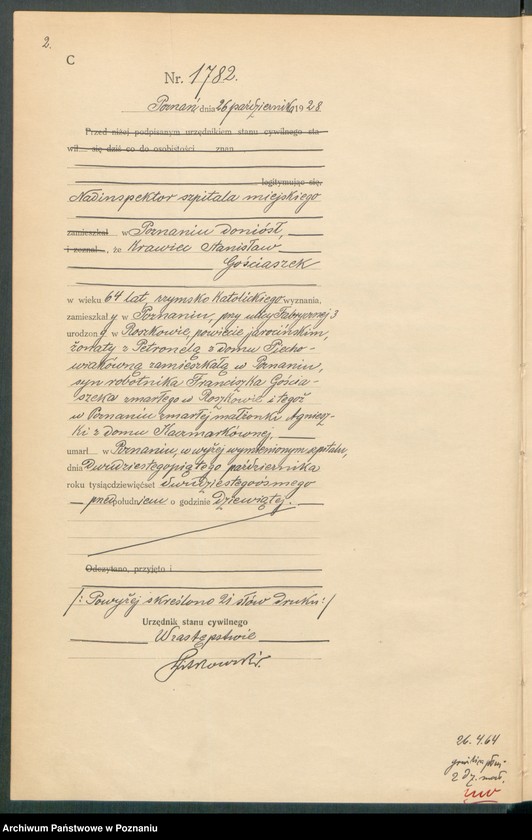 2.
C
Nr. 1782.
Poznań dnia 26 października 1928
Przed niżej podpisanym urzędnikiem stanu cywilnego sta-
wił się dziś co do osobistości znan
legitymując się,
Nadinspektor szpitala miejskiego
zamieszkał w Poznaniu doniósł,
i zeznał, że Krawiec Stanisław
Gościaszek
w wieku 64 lat, rzymsko katolickiego wyznania,
zamieszkały w Poznaniu, przy ulicy Fabrycznej 3
urodzony w Roszkowie, powiecie jarocińskim,
żonaty z Petronelą z domu Piecho-
wiakówną zamieszkałą w Poznaniu,
syn robotnika Franciszka Gościa-
szeka zmarłego w Roszkowie i tegoż
w Poznaniu zmarłej małżonki Agniesz-
ki z domu Kaczmarkównej,
umarł w Poznaniu, w wyżej wymienionym szpitalu,
dnia Dwudziestegopiątego października
roku tysiącdziewięćset dwudziestegoósmego
przedpołudniem o godzinie Dziewiątej.
Odczytano, przyjęto i
/: Powyżej skreślono 21 słów druku :/
Urzędnik stanu cywilnego
W zastępstwie
26.4.64
2
Archiwum Państwowe w Poznaniu